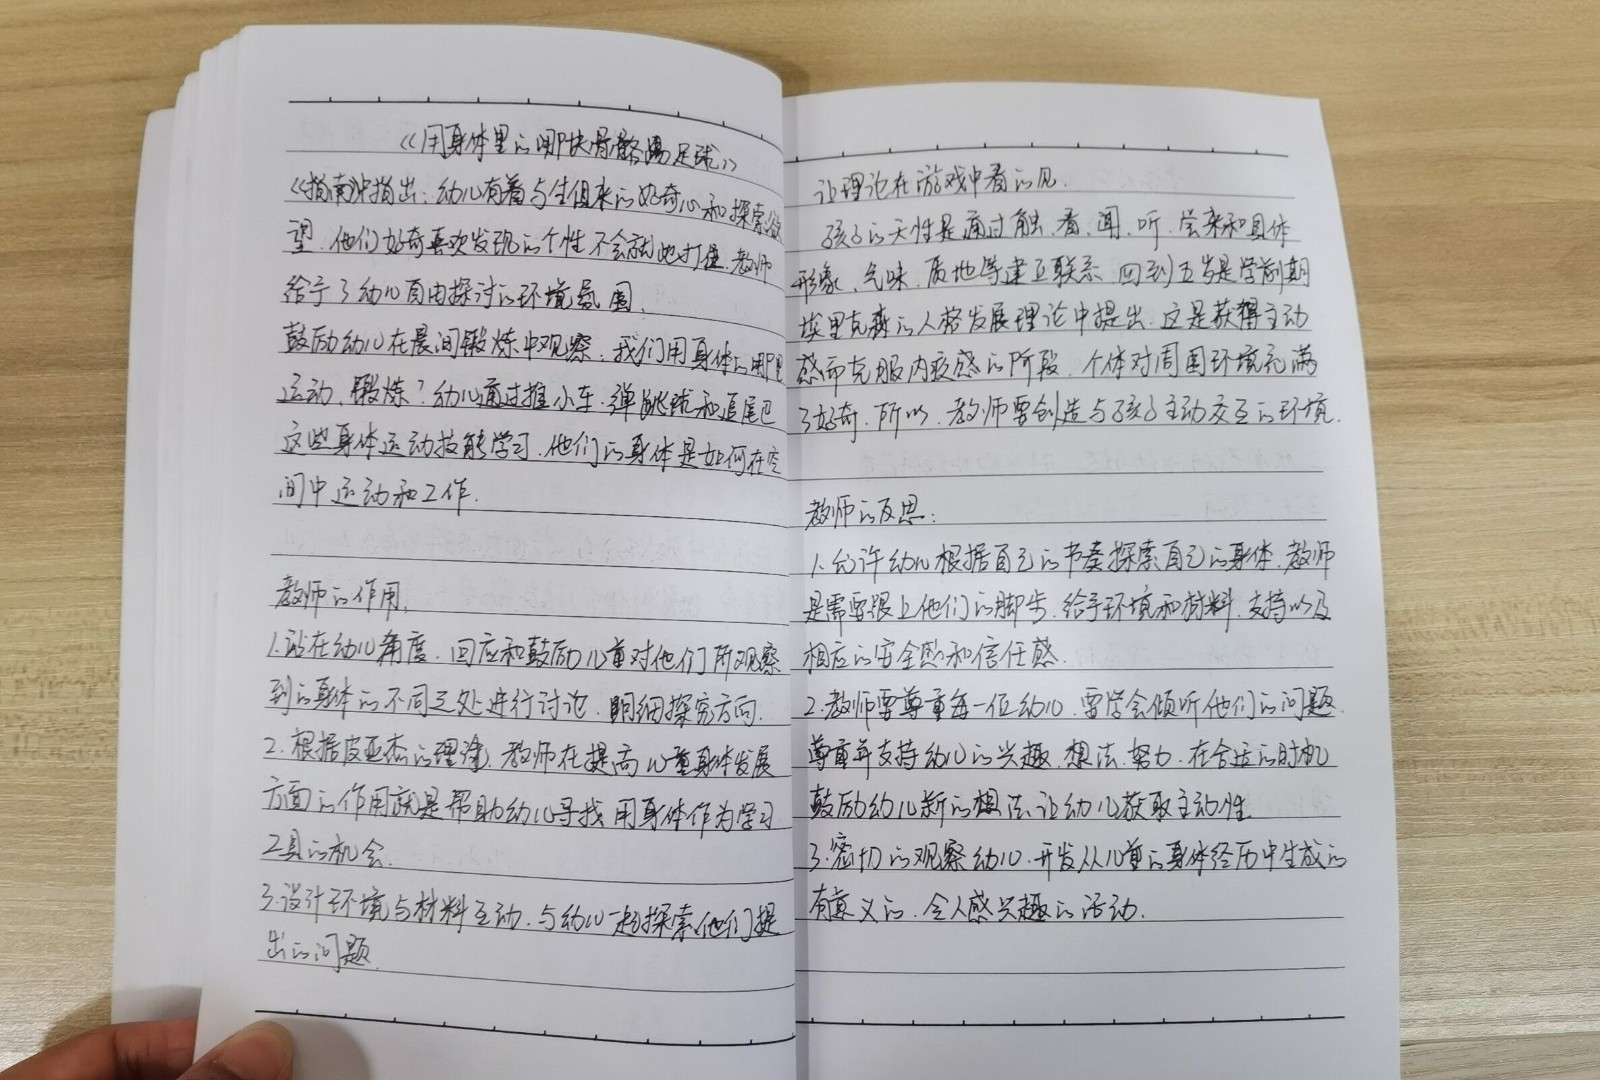 《用身体里的哪块骨骼踢足球》
《指南》中指出：幼儿有着与生俱来的好奇心和探索欲
望，他们好奇喜欢发现的个性不会就此打住，教师
给予了幼儿自由探讨的环境氛围，
鼓励幼儿在晨间锻炼中观察，我们用身体的哪里
运动、锻炼？幼儿通过推小车、弹跳球和追尾巴
这些身体运动技能学习，他们的身体是如何在空
间中运动和工作．
教师的作用．
1.站在幼儿角度，回应和鼓励儿童对他们所观察
到的身体的不同之处进行讨论，明细探究方向．
2.根据皮亚杰的理论，教师在提高儿童身体发展
方面的作用就是帮助幼儿寻找用身体作为学习
工具的机会．
3.设计环境与材料互动，与幼儿一起探索他们提
出的问题．
让理论在游戏中看的见．
孩子的天性是通过触、看、闻、听、尝来和具体
形象、气味、质地等建立联系，四到五岁是学前期
埃里克森的人格发展理论中提出，这是获得主动
感而克服内疚感的阶段，个体对周围环境充满
了好奇，所以，教师要创造与孩子主动交互的环境．
教师的反思：
1.允许幼儿根据自己的节奏探索自己的身体，教师
是需要跟上他们的脚步，给予环境和材料，支持以及
相应的安全感和信任感．
2.教师要尊重每一位幼儿，要学会倾听他们的问题，
尊重并支持幼儿的兴趣、想法、努力，在合适的时机
鼓励幼儿新的想法，让幼儿获取主动性
3.密切的观察幼儿，开发从儿童的身体经历中生成的
有意义的，令人感兴趣的活动．